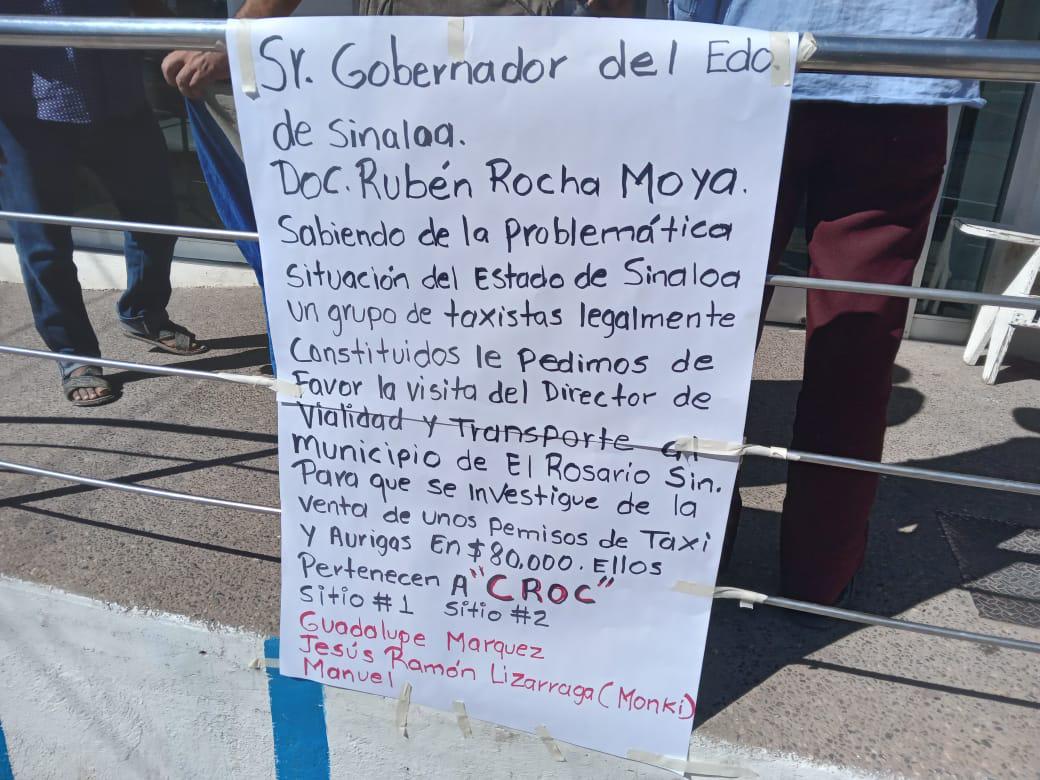 Sr. Gobernador del Edo.
de Sinaloa.
Doc. Rubén Rocha Moya.
Sabiendo de la Problemática
Situación del Estado de Sinaloa
un grupo de taxistas legalmente
Constituidos le Pedimos de
Favor la visita del Director de
Vialidad y Transporte al
Municipio de El Rosario Sin.
Para que se Investigue de la
venta de unos Pemisos de Taxi
y Aurigas En $80,000. Ellos
Pertenecen A "CROC"
Sitio #1 Sitio #2
Guadalupe Marquez
Jesús Ramón Lizarraga (Monki)
Manuel